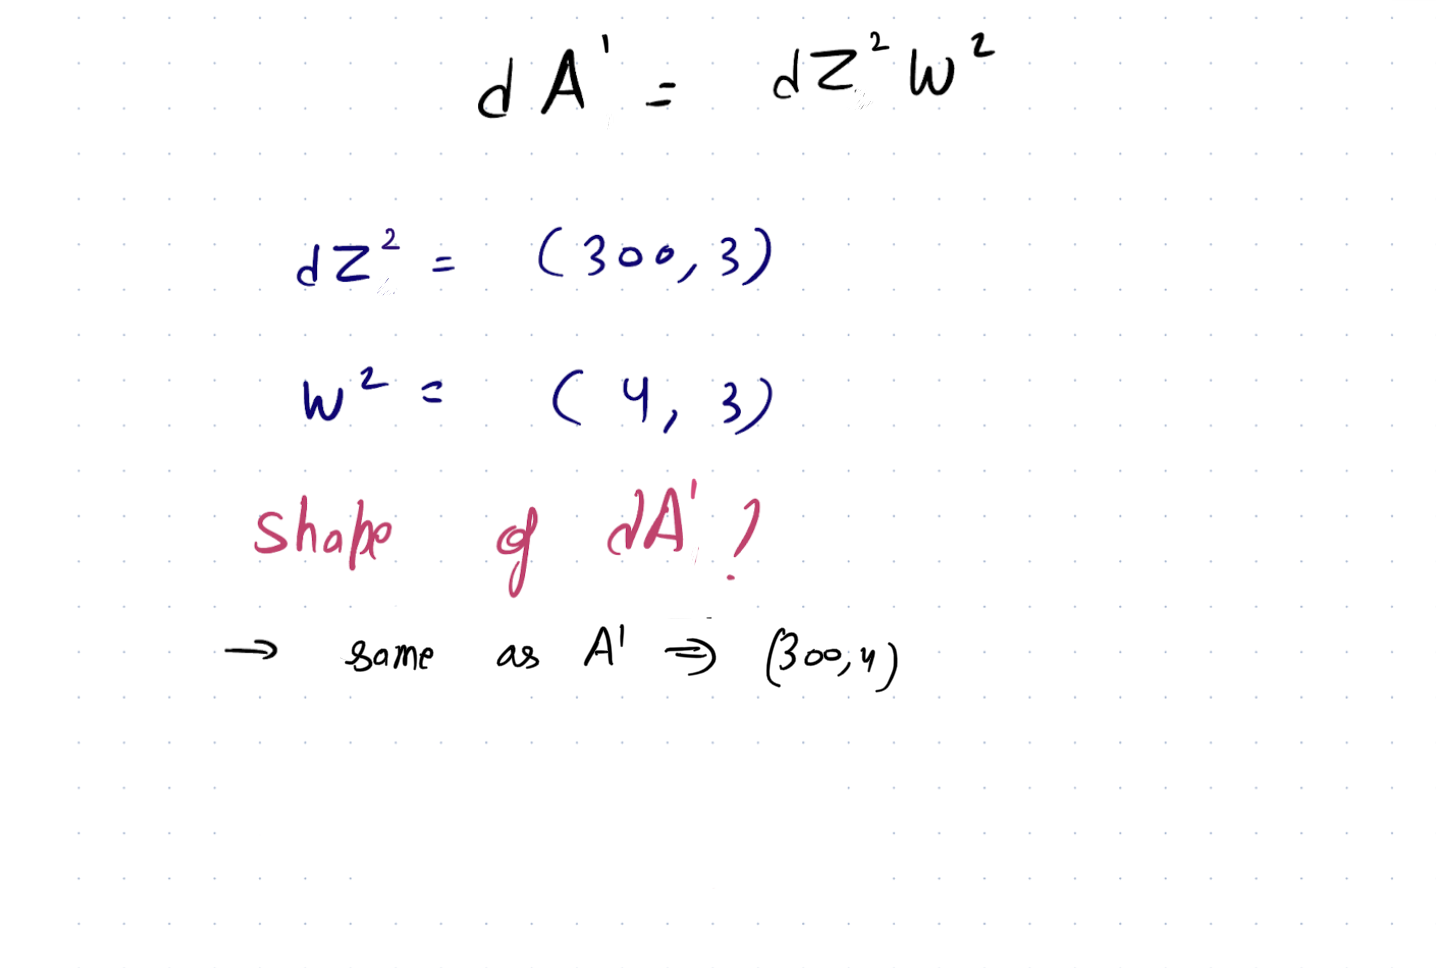 dA¹ = dZ² W²
dZ² = (300, 3)
W² = (4, 3)
Shape of dA¹ ?
→ same as A¹ ⇒ (300, 4)